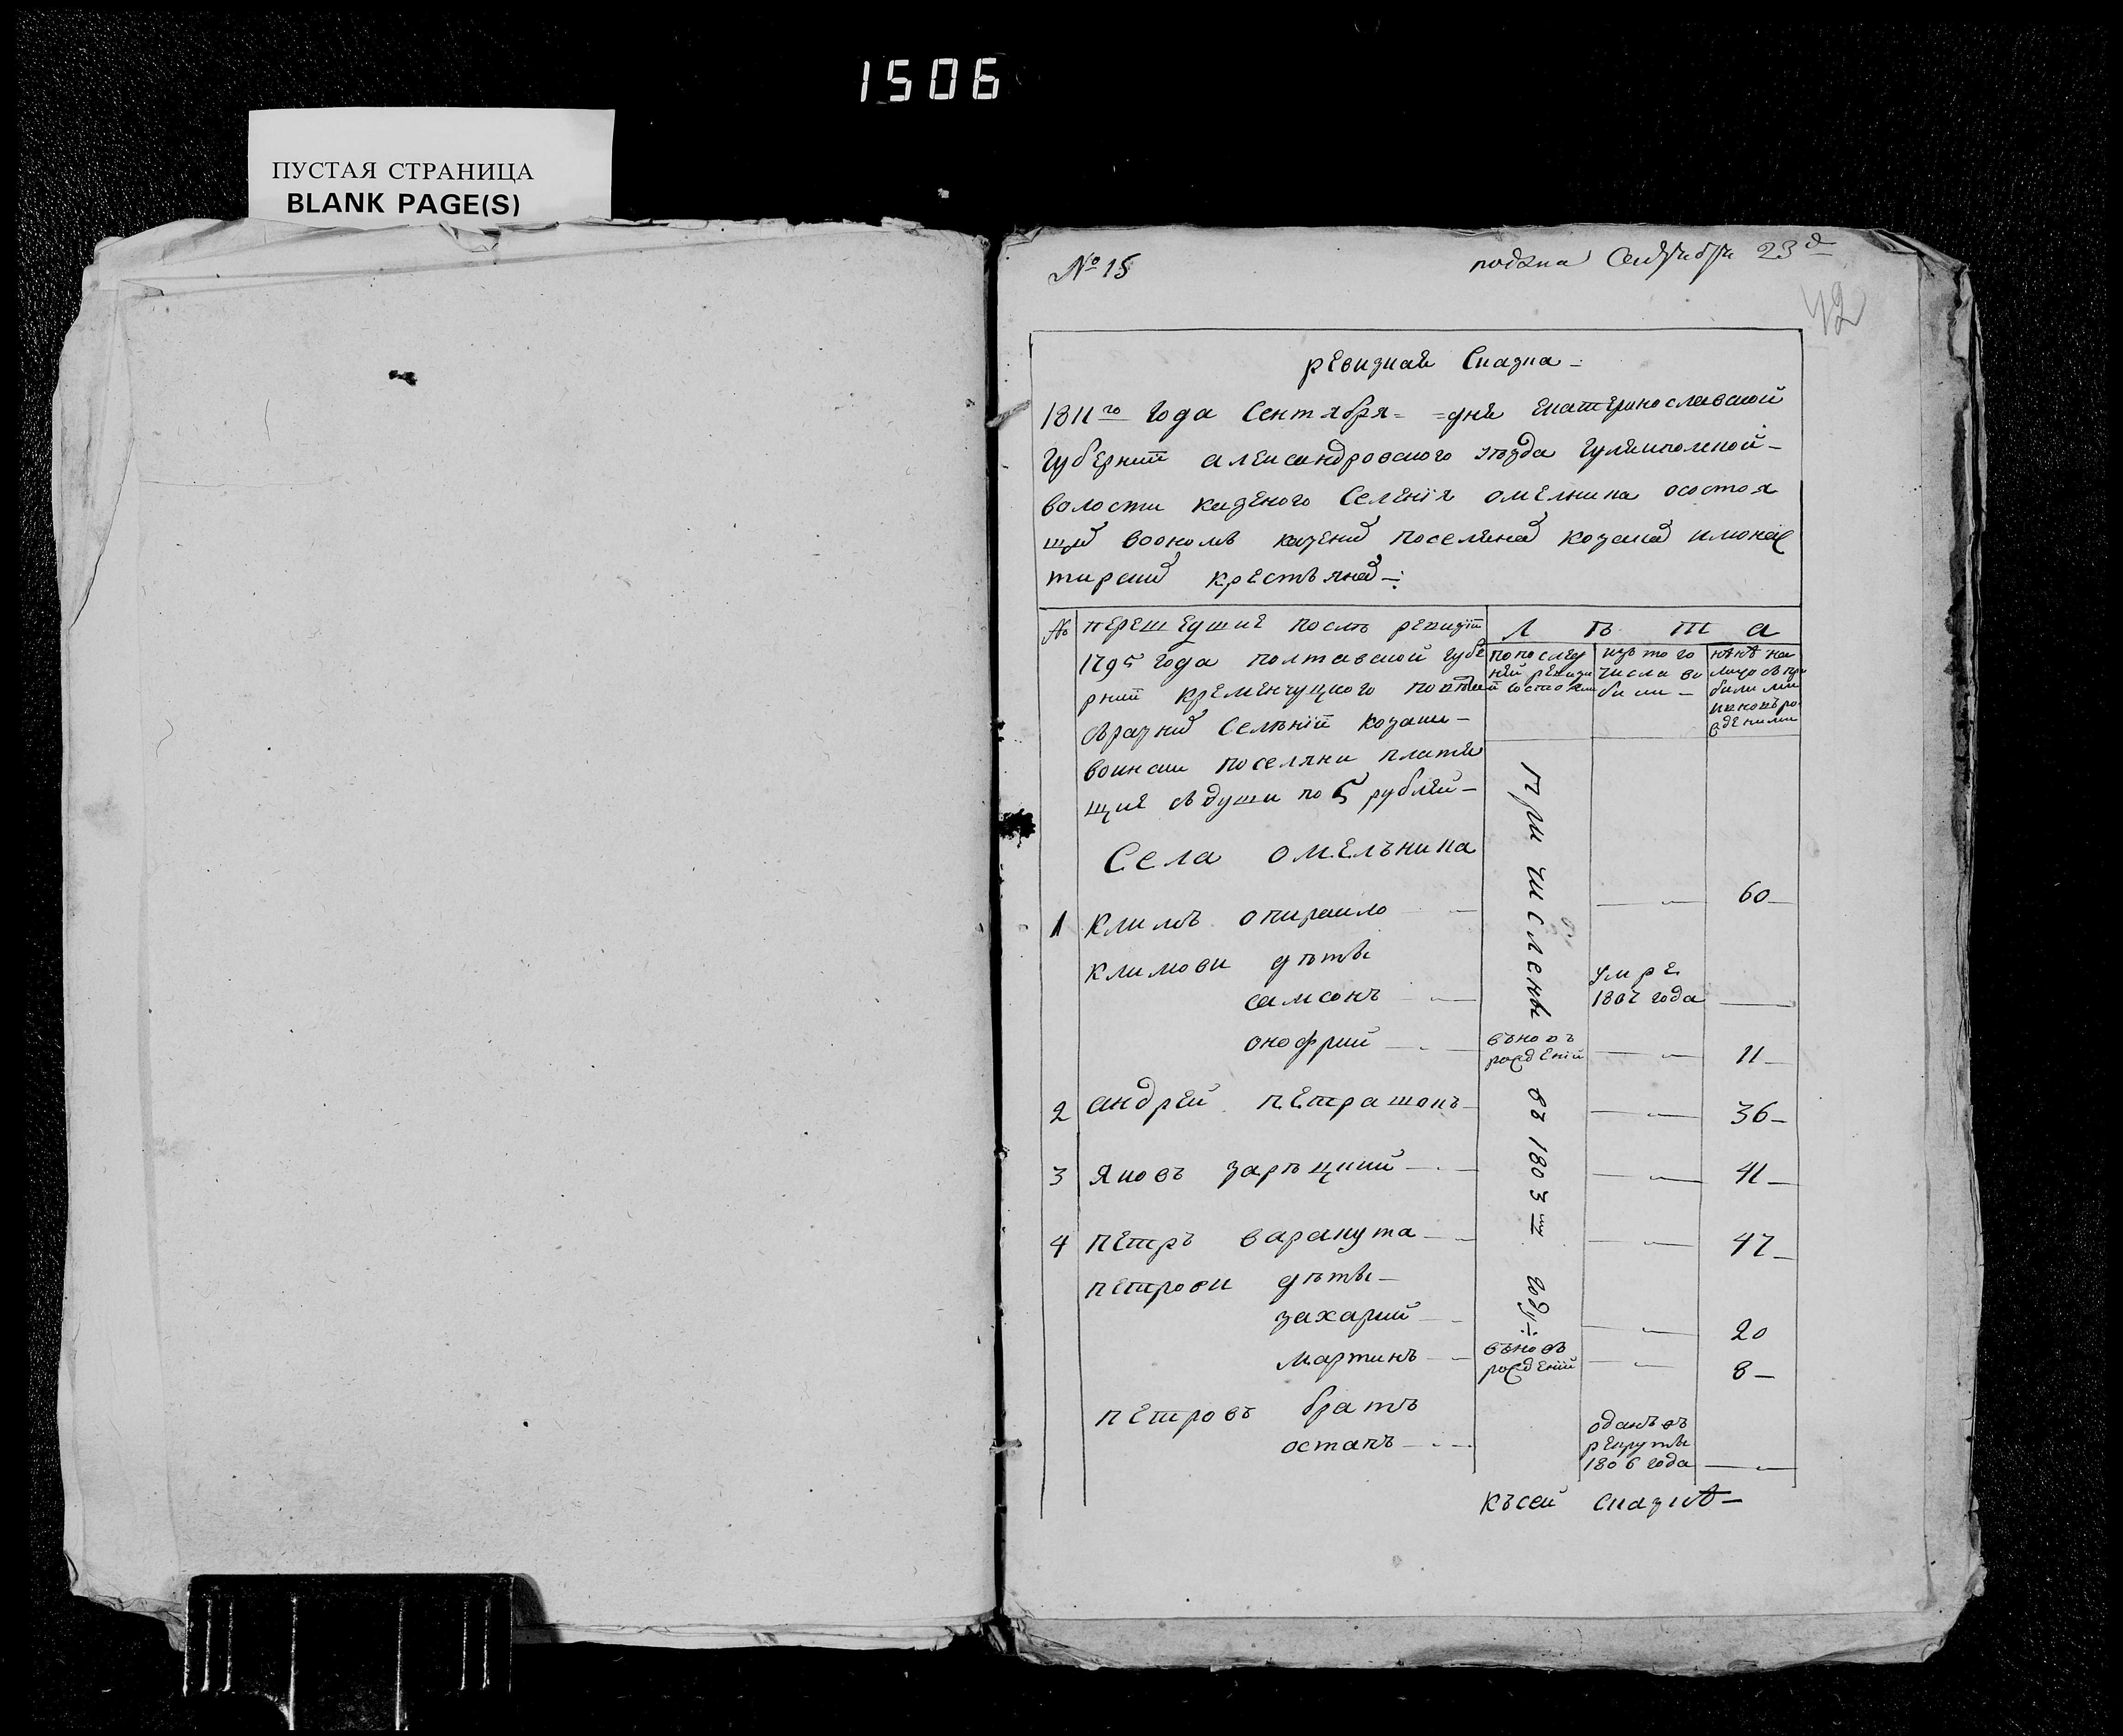 1506
ПУСТАЯ СТРАНИЦА
BLANK PAGE(S)
№ 15
подана Сентября 23 д
42
ревизкая Сказка
1811го года Сентября = = дня Екатеринославской
губернии александровского уезда гуляйполской
волости казеного Селенїя омелника осостоя
щих воономъ казених поселянах козаках имонас
тирских крестьянах
№ перешедшие послѣ ревизїи
1795 года полтавской губе
рнии кременчуцкого повѣта
зъразних Селѣнїй козаки
воински поселяни платя
щие здуши по 5 рублей
Л ѣ т а
попослед
ней ревизи
и состояли
изъ того
числа во
били
нынѣ на
лицо съпри
билими
ивновъро
жденими
Села омелъника
причислены въ 1803м году
1 климъ опирайло 60
климови дѣти
самсонъ умре 1807 года
онофрий вънов рожденїй 11
2 андрей петрашонъ 36
3 яковъ зарѣцкий 41
4 петръ варакута 47
петрови дѣти
захарий 20
мартинъ вънов рожденїй 8
петровъ братъ
остапъ оданъ въ
рекруты
1806 года
късей сказкѣ